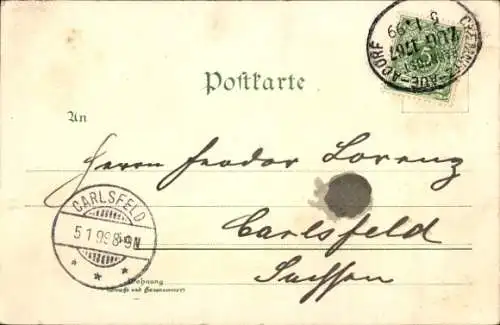 CHEMNITZ-AUE-ADORF
ZUG 1767
5 1 99
Postkarte
An
Herrn Feodor Lorenz
Carlsfeld
Sachsen
CARLSFELD
5 1 99 8-9N
Wohnung
(Straße und Hausnummer)